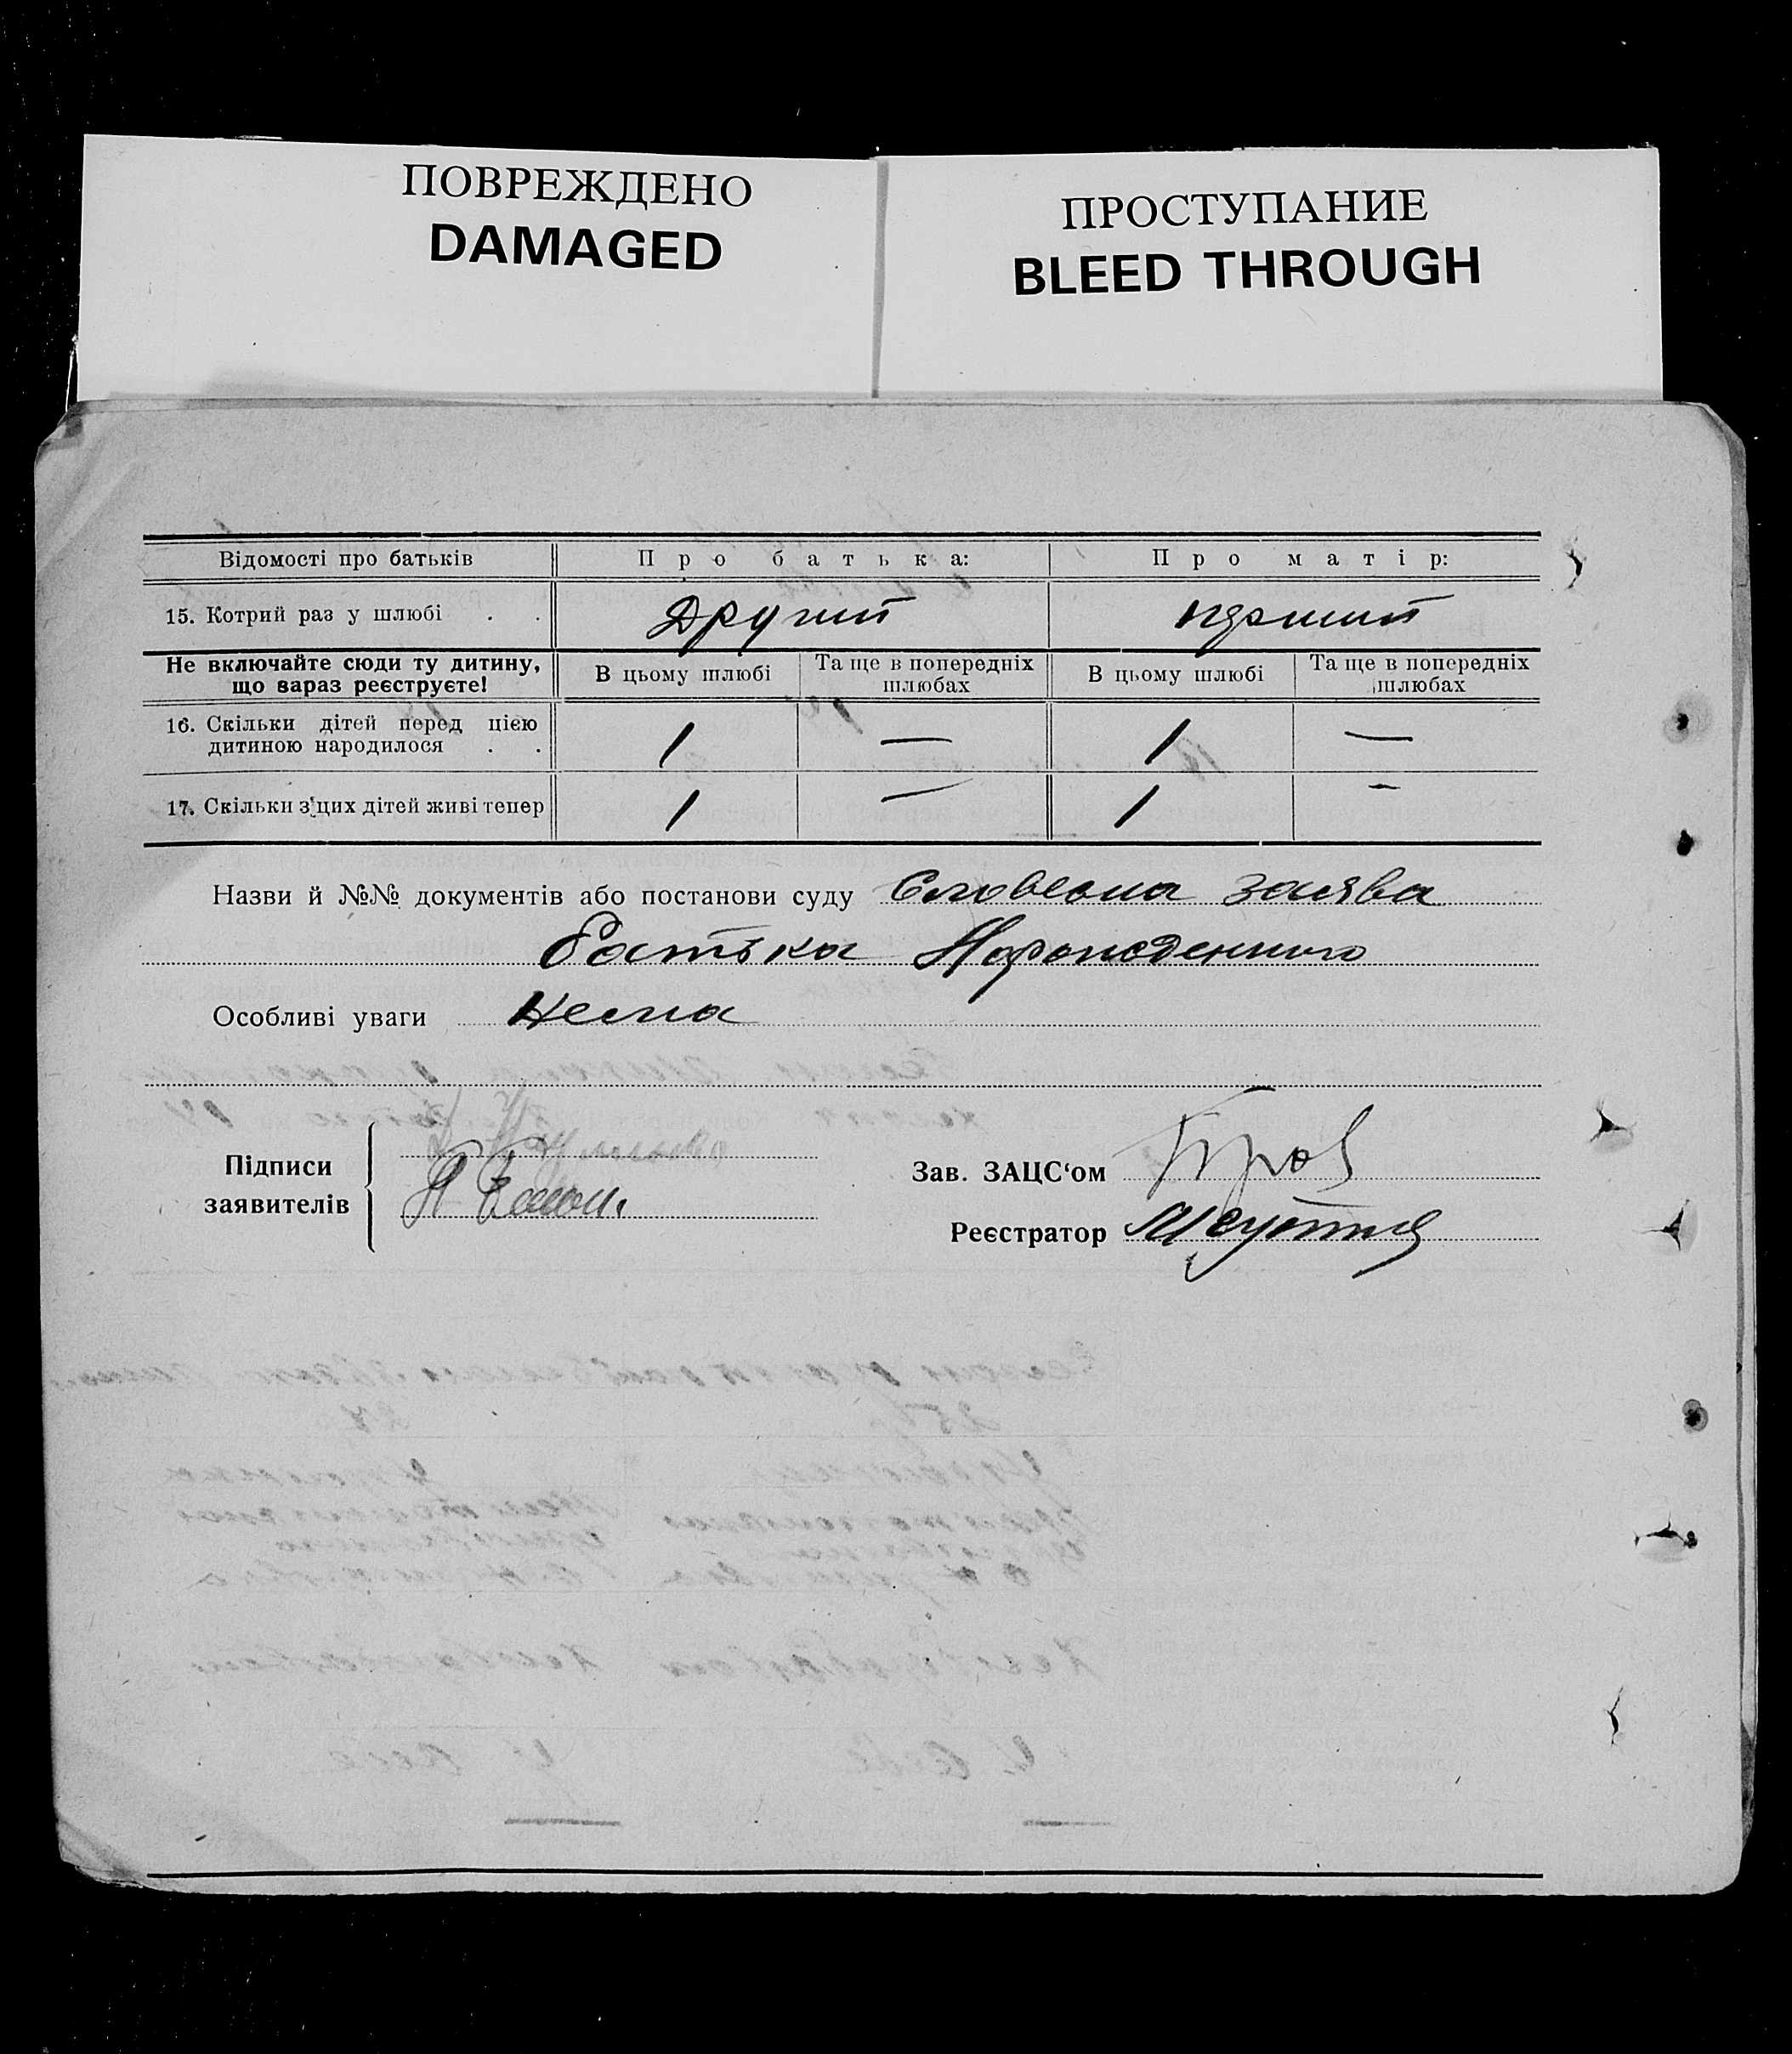 ПОВРЕЖДЕНО
DAMAGED
ПРОСТУПАНИЕ
BLEED THROUGH
Відомості про батьків Про батька: Про матір:
15. Котрий раз у шлюбі . . Другий перший
Не включайте сюди ту дитину, що вараз реєструєте! В цьому шлюбі Та ще в попередніх шлюбах В цьому шлюбі Та ще в попередніх шлюбах
16. Скільки дітей перед цією дитиною народилося . . 1 — 1 —
17. Скільки з цих дітей живі тепер 1 — 1 —
Назви й №№ документів або постанови суду Словесна заява
батька Народженного
Особливі уваги Нема
Підписи заявителів
Зав. ЗАЦС‘ом
Реєстратор